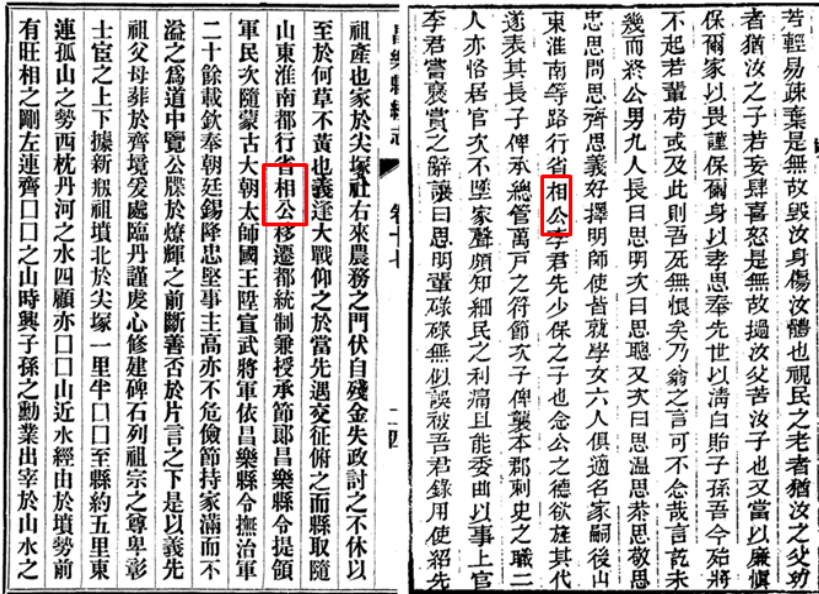 若輕易疎棄是無故毀汝身傷汝體也視民之老者猶汝之父幼
者猶汝之子若妄肆喜怒是無故撾汝父苦汝子也又當以廉愼
保爾家以畏謹保爾身以孝思奉先世以淸白貽子孫吾今殆將
不起若輩苟或及此則吾死無恨矣乃翁之言可不念哉言訖未
幾而終公男九人長曰思明次曰思聰又次曰思温思恭思敬思
忠思問思齊思義好擇明師使皆就學女六人俱適名家嗣後山
東淮南等路行省相公李君先少保之子也念公之德欲旌其代
遂表其長子俾承總管萬戸之符節次子俾襲本郡刺史之職二
人亦恪居官次不墜家聲頗知細民之利痛且能委曲以事上官
李君嘗褒賞之辭讓曰思明輩碌碌無似誤被吾君錄用使紹先
昌樂縣續志 卷十七 二四
祖產也家於尖塚社右來農務之門伏自殘金失政討之不休以
至於何草不黃也義逢大戰仰之於當先遇交征俯之而縣取隨
山東淮南都行省相公移遷都統制兼授承節郞昌樂縣令提領
軍民次隨蒙古大朝太師國王陞宣武將軍依昌樂縣令撫治軍
二十餘載欽奉朝廷錫降忠堅事主高亦不危儉節持家滿而不
溢之爲道中覽公牒於燎輝之前斷善否於片言之下是以義先
祖父母葬於齊境爰處臨丹謹虔心修建碑石列祖宗之尊卑彰
士宦之上下據新㼚祖墳北於尖塚一里半口口至縣約五里東
連孤山之勢西枕丹河之水四顧亦口口山近水經由於墳勢前
有旺相之剛左連齊口口之山時興子孫之勳業出宰於山水之